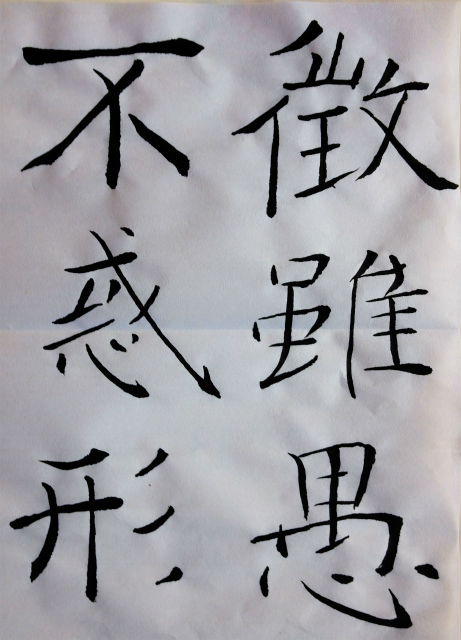 徵雖愚
不惑形